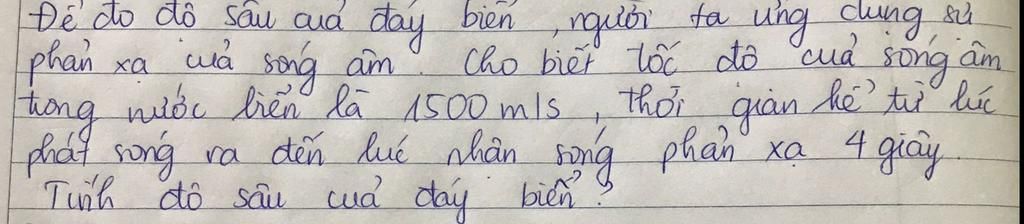 Để đo độ sâu của đáy biển, người ta ứng dụng sự
phản xạ của sóng âm. Cho biết tốc độ của sóng âm
trong nước biển là 1500 m/s, thời gian kể từ lúc
phát sóng ra đến lúc nhận sóng phản xạ 4 giây.
Tính độ sâu của đáy biển?